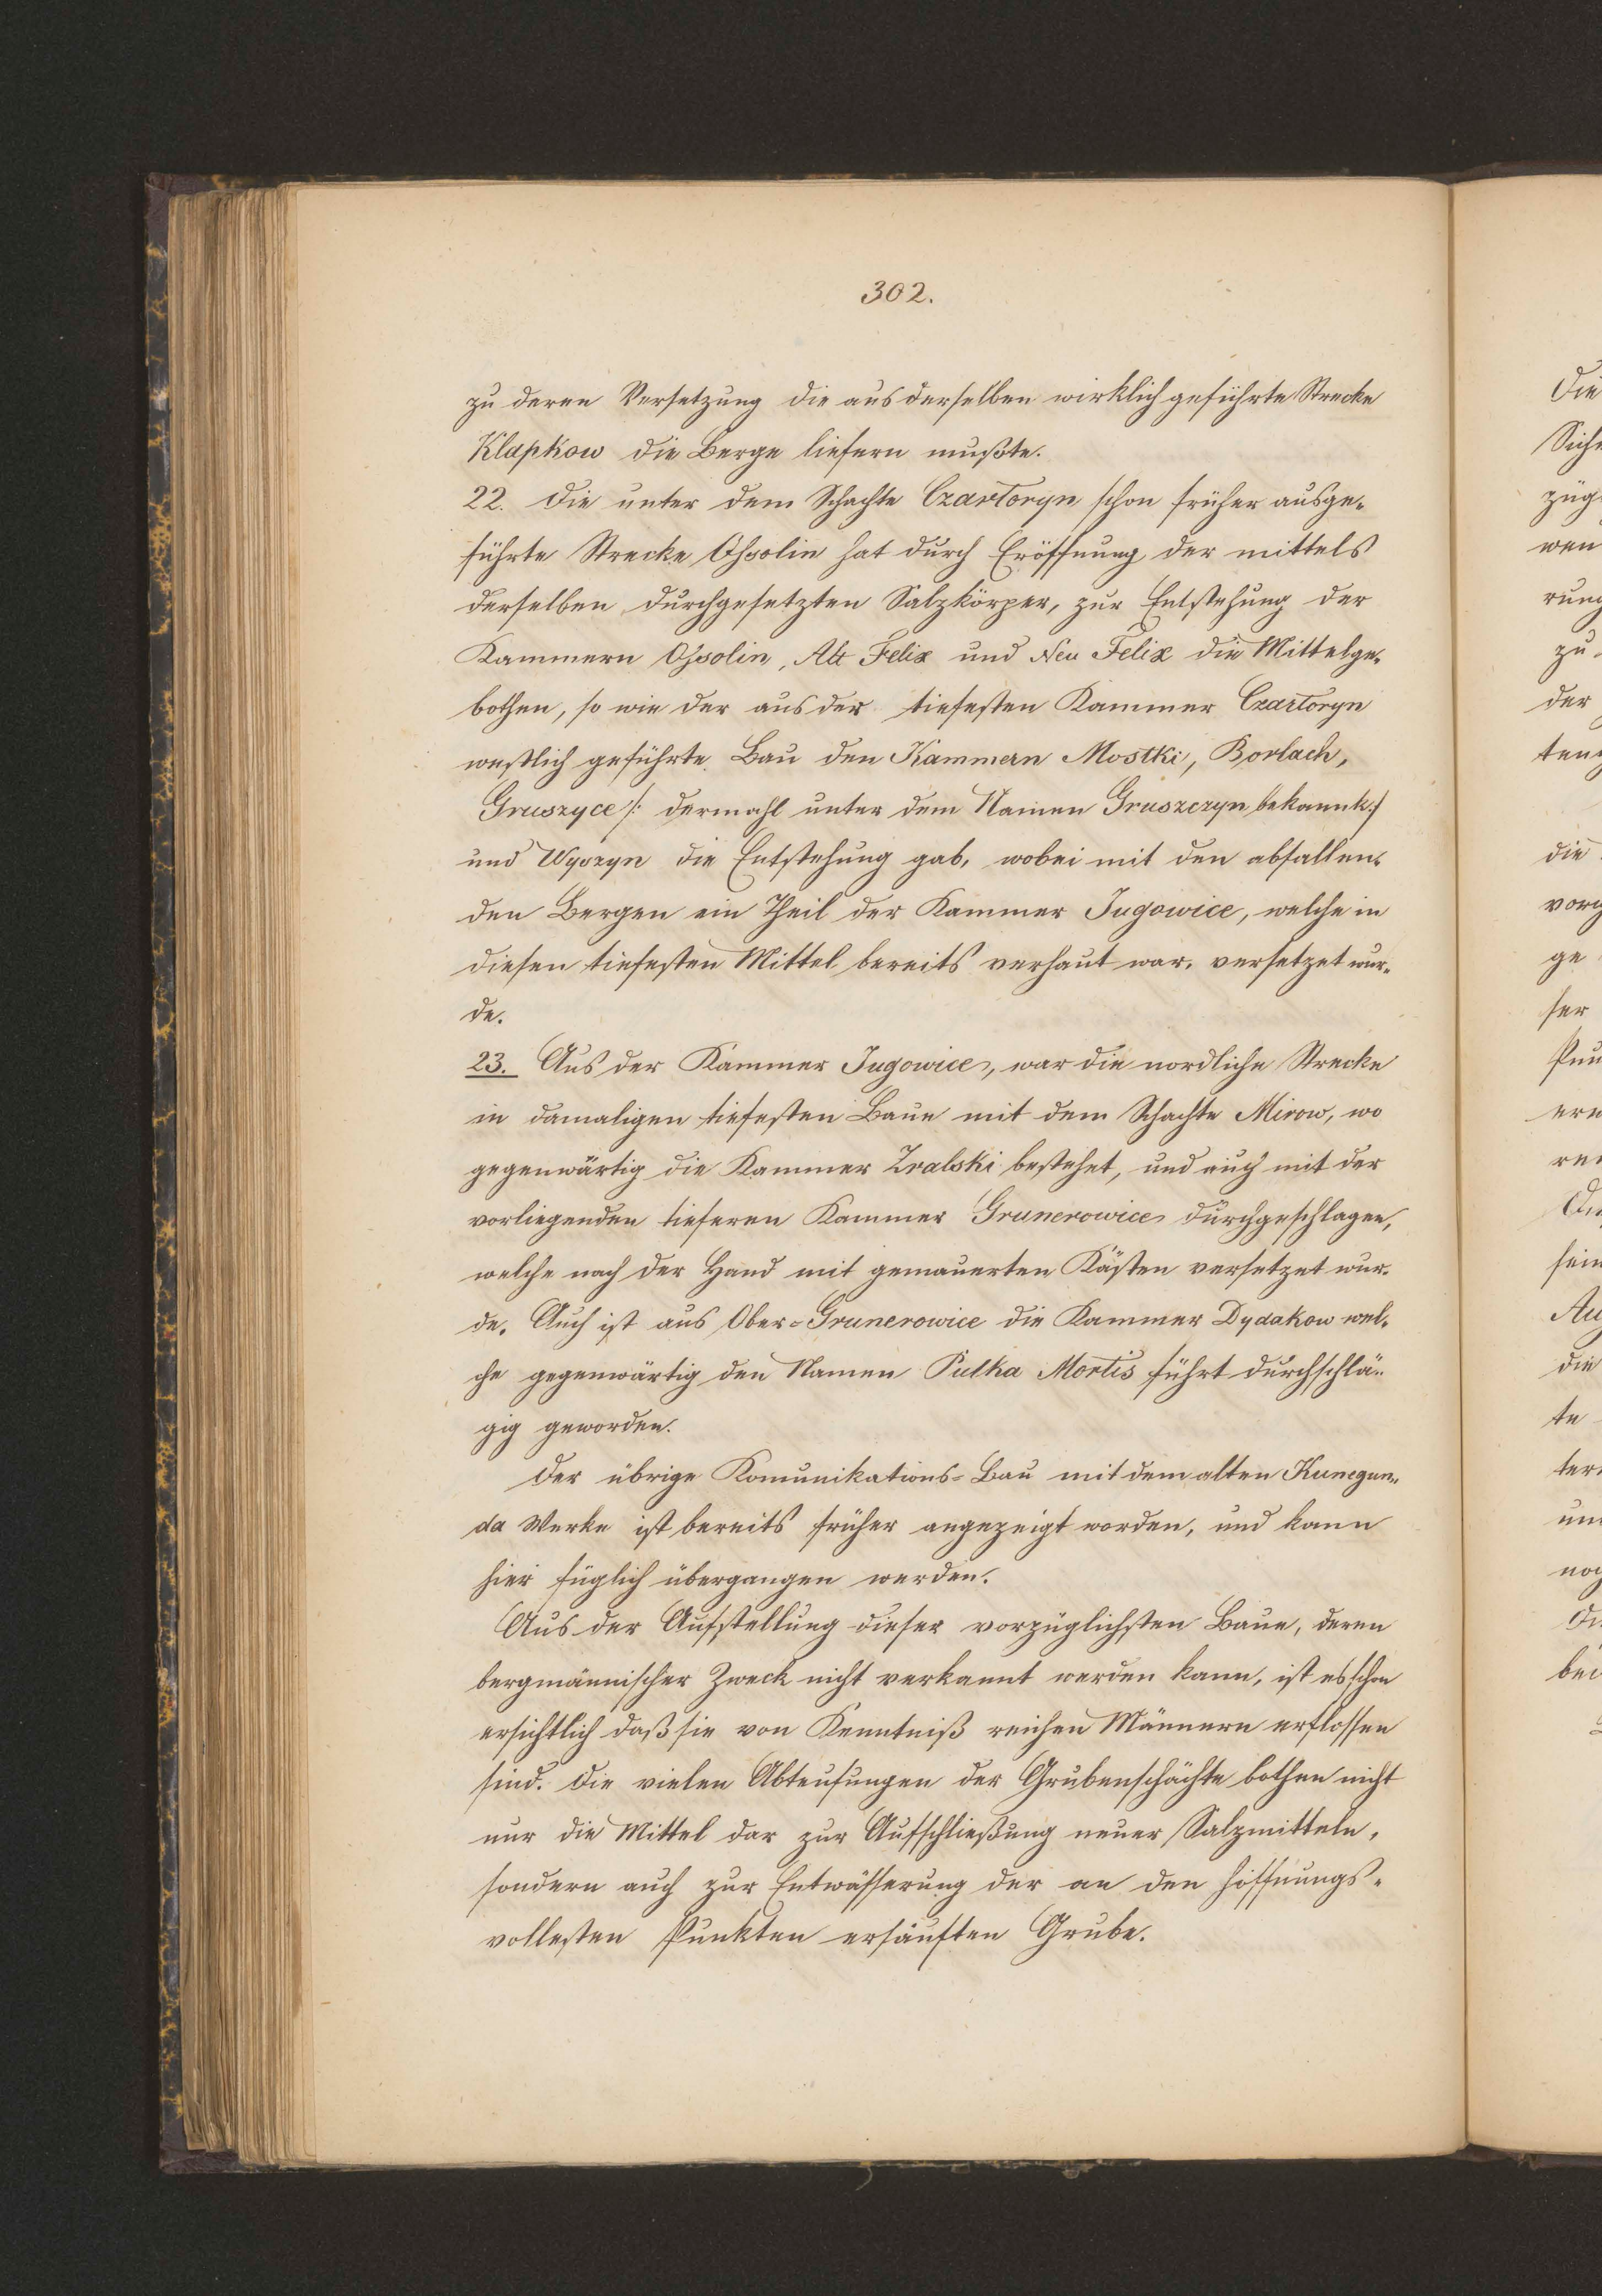 302.
zu deren Versetzung die aus derselben wirklich geführte Strecke
Klapkow die Berge liefern mußte.
22. Die unter dem Schachte Czartoryn schon früher ausge-
führte Strecke Ossolin hat durch Eröffnung der mittels
derselben durchgesetzten Salzkörper, zur Entstehung der
Kammern Ossolin, Alt Felix und Neu Felix die Mittelge-
bothen, so wie der aus der tiefesten Kammer Czartoryn
westlich geführte Bau den Kammern Mostki, Borlach,
Gruszyce /: dermahl unter dem Namen Gruszczyn bekannt:/
und Wyszyn die Entstehung gab, wobei mit den abfallen-
den Bergen ein Theil der Kammer Jugowice, welche in
diesen tiefesten Mittel bereits verhaut war, versetzet wur-
de.
23. Aus der Kammer Jugowice, war die nordliche Strecke
in damaligen tiefesten Baue mit dem Schachte Mirow, wo
gegenwärtig die Kammer Zralski bestehet, und auch mit der
vorliegenden tieferen Kammer Grunerowice durchgeschlagen,
welche nach der Hand mit gemauerten Kästen versetzet wur-
de. Auch ist aus Ober-Grunerowice die Kammer Dydakow wel-
che gegenwärtig den Namen Pułka Mortis führt durchschlä-
gig geworden.
Der übrige Komunikations-Bau mit dem alten Kunegun-
da Werke ist bereits früher angezeigt worden, und kann
hier füglich übergangen werden.
Aus der Aufstellung dieser vorzüglichsten Baue, deren
bergmännischer Zweck nicht verkannt werden kann, ist es schon
ersichtlich daß sie von Kenntniß reichen Männern erflossen
sind. Die vielen Abteufungen der Grubenschächte bothen nicht
nur die Mittel dar zur Aufschließung neuer Salzmitteln,
sondern auch zur Entwässerung der an den hoffnungs-
vollesten Punkten ersäuften Grube.